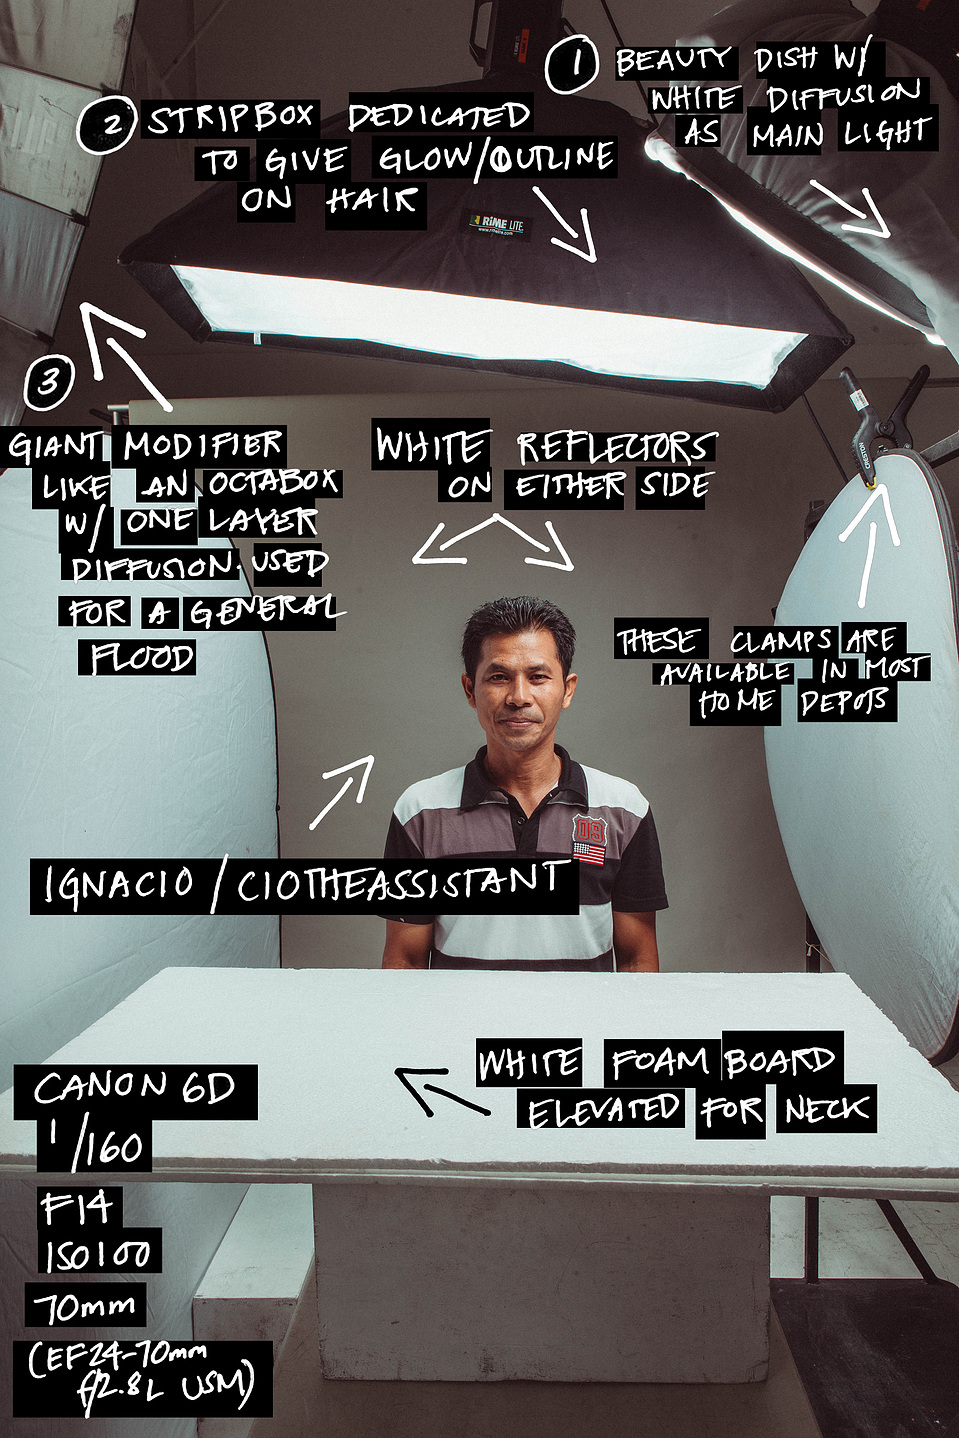 1 BEAUTY DISH W/
WHITE DIFFUSION
AS MAIN LIGHT
2 STRIPBOX DEDICATED
TO GIVE GLOW/OUTLINE
ON HAIR
RiME LITE
www.rimelite.com
3
GIANT MODIFIER
LIKE AN OCTABOX
W/ ONE LAYER
DIFFUSION. USED
FOR A GENERAL
FLOOD
WHITE REFLECTORS
ON EITHER SIDE
CRESTON
THESE CLAMPS ARE
AVAILABLE IN MOST
HOME DEPOTS
09
IGNACIO / CLOTHEASSISTANT
WHITE FOAM BOARD
ELEVATED FOR NECK
CANON 6D
1/160
F14
ISO100
70mm
(EF24-70mm
f/2.8L USM)